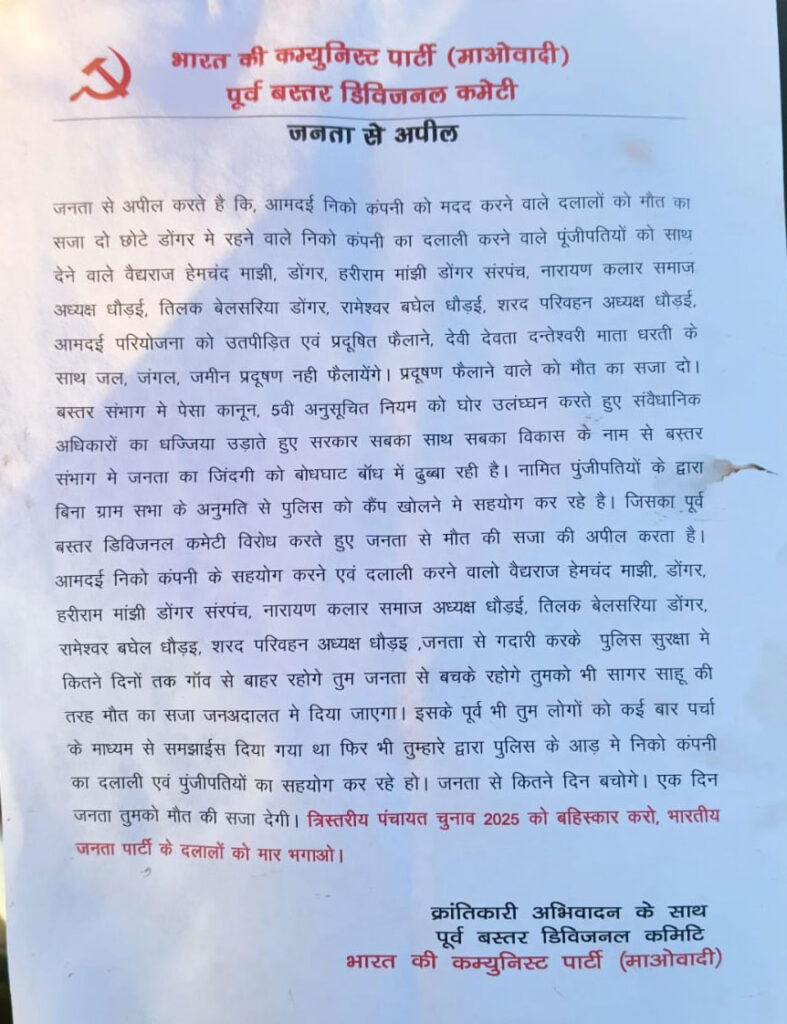 भारत की कम्युनिस्ट पार्टी (माओवादी)
पूर्व बस्तर डिविजनल कमेटी
जनता से अपील
जनता से अपील करते है कि, आमदई निको कंपनी को मदद करने वाले दलालों को मौत का
सजा दो छोटे डोंगर मे रहने वाले निको कंपनी का दलाली करने वाले पूंजीपतियों को साथ
देने वाले वैद्यराज हेमचंद माझी, डोंगर, हरीराम मांझी डोंगर संरपंच, नारायण कलार समाज
अध्यक्ष धौड़ई, तिलक बेलसरिया डोंगर, रामेश्वर बघेल धौड़ई, शरद परिवहन अध्यक्ष धौड़ई,
आमदई परियोजना को उतपीड़ित एवं प्रदूषित फैलाने, देवी देवता दन्तेश्वरी माता धरती के
साथ जल, जंगल, जमीन प्रदूषण नही फैलायेंगे। प्रदूषण फैलाने वाले को मौत का सजा दो।
बस्तर संभाग मे पेसा कानून, 5वी अनुसूचित नियम को घोर उलंघ्घन करते हुए संवैधानिक
अधिकारों का धज्जिया उड़ाते हुए सरकार सबका साथ सबका विकास के नाम से बस्तर
संभाग मे जनता का जिंदगी को बोधघाट बॉध में ढुब्बा रही है। नामित पुंजीपतियों के द्वारा
बिना ग्राम सभा के अनुमति से पुलिस को कैंप खोलने मे सहयोग कर रहे है। जिसका पूर्व
बस्तर डिविजनल कमेटी विरोध करते हुए जनता से मौत की सजा की अपील करता है।
आमदई निको कंपनी के सहयोग करने एवं दलाली करने वालो वैद्यराज हेमचंद माझी, डोंगर,
हरीराम मांझी डोंगर संरपंच, नारायण कलार समाज अध्यक्ष धौड़ई, तिलक बेलसरिया डोंगर,
रामेश्वर बघेल धौड़इ, शरद परिवहन अध्यक्ष धौड़इ ,जनता से गदारी करके पुलिस सुरक्षा मे
कितने दिनों तक गॉव से बाहर रहोगे तुम जनता से बचके रहोगे तुमको भी सागर साहू की
तरह मौत का सजा जनअदालत मे दिया जाएगा। इसके पूर्व भी तुम लोगों को कई बार पर्चा
के माध्यम से समझाईस दिया गया था फिर भी तुम्हारे द्वारा पुलिस के आड़ मे निको कंपनी
का दलाली एवं पुंजीपतियों का सहयोग कर रहे हो। जनता से कितने दिन बचोगे। एक दिन
जनता तुमको मौत की सजा देगी। त्रिस्तरीय पंचायत चुनाव 2025 को बहिस्कार करो, भारतीय
जनता पार्टी के दलालों को मार भगाओ।
क्रांतिकारी अभिवादन के साथ
पूर्व बस्तर डिविजनल कमिटि
भारत की कम्युनिस्ट पार्टी (माओवादी)